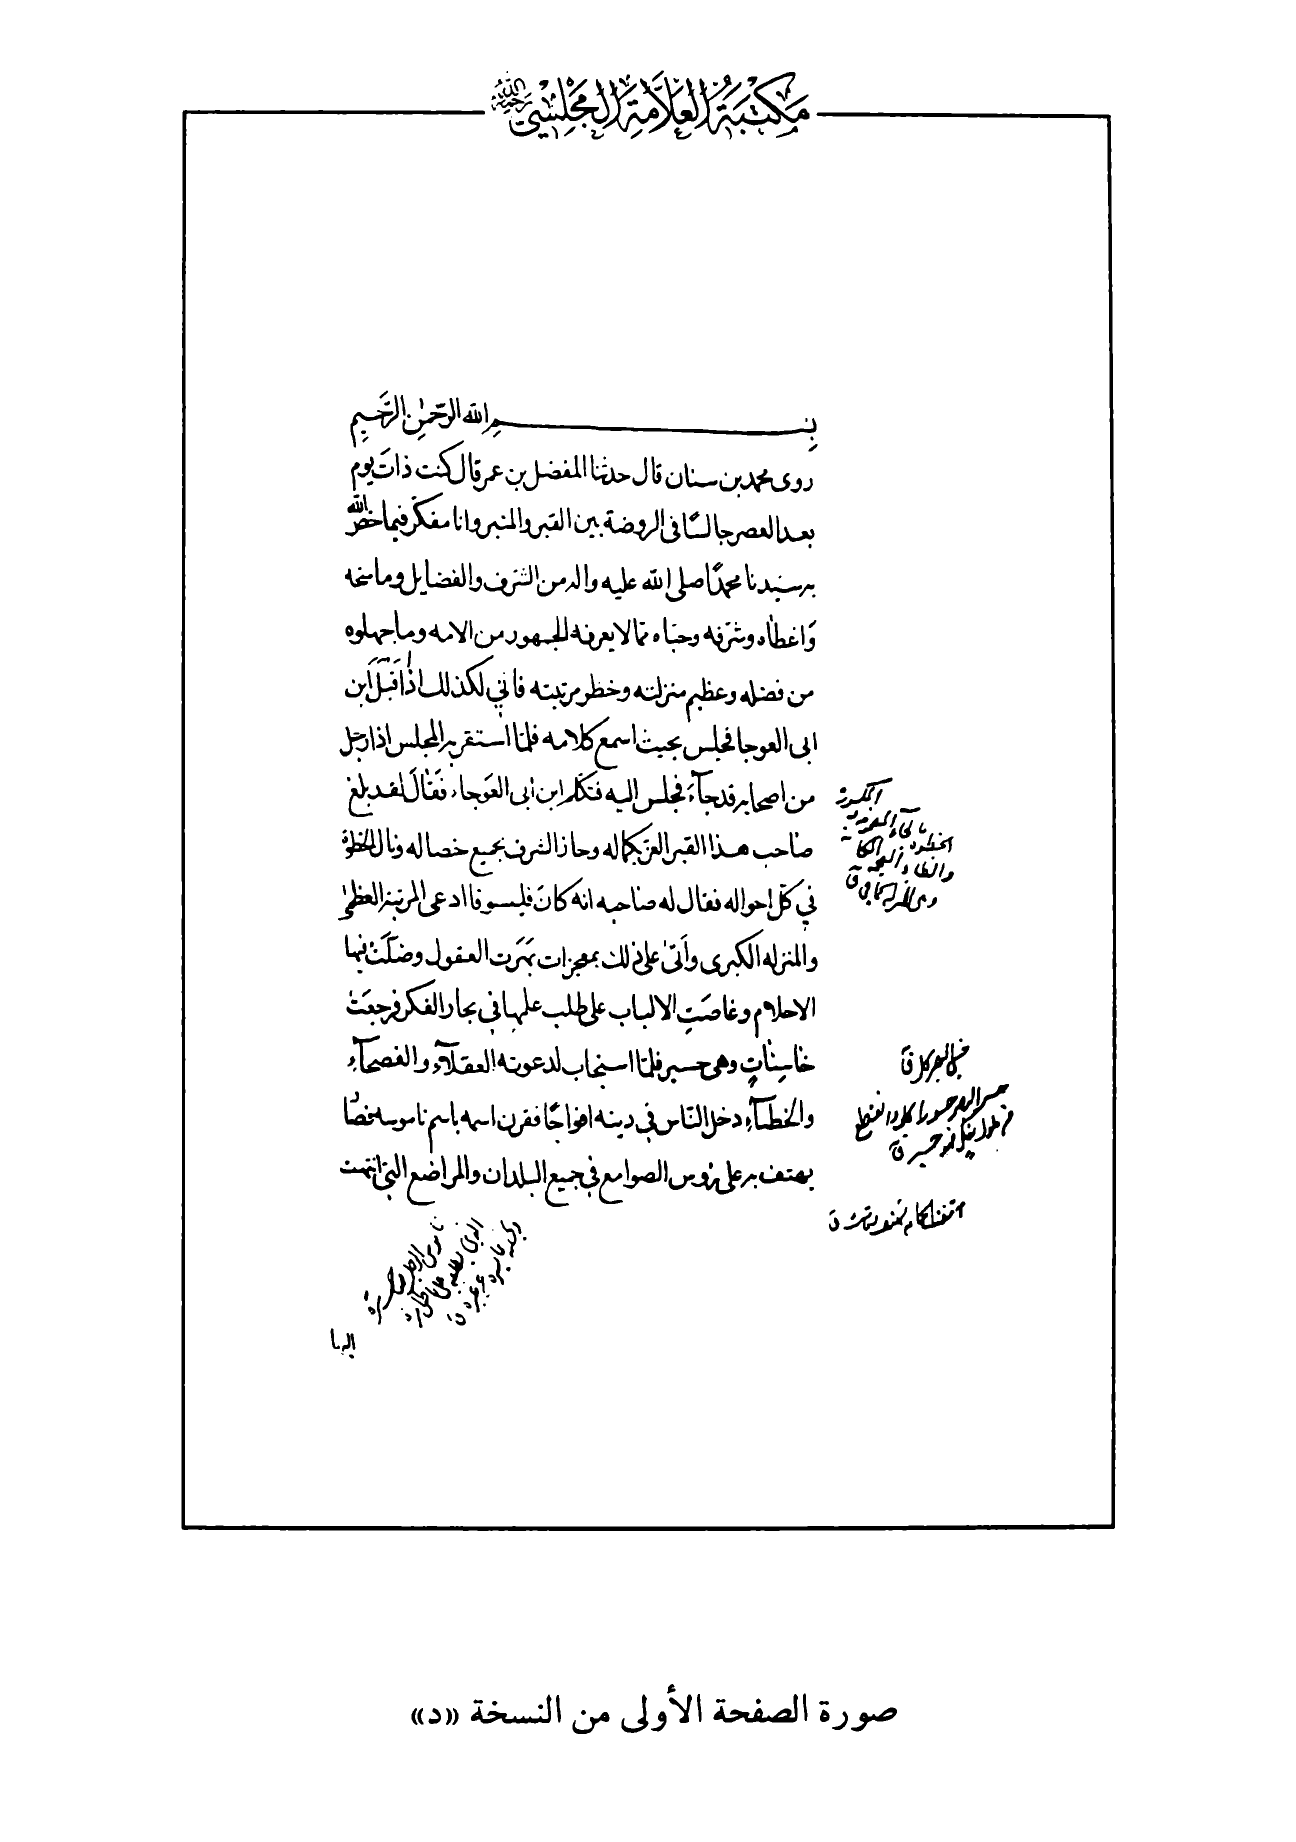 مكتبة العلامة المجلسي رحمه الله
بسم الله الرحمن الرحيم
روى محمد بن سنان قال حدثنا المفضل بن عمر قال كنت ذات يوم
بعد العصر جالسًا فى الروضة بين القبر والمنبر وانا مفكر فيما خص الله
به سيدنا محمدًا صلى الله عليه واله من الشرف والفضايل وما منحه
واعطاه وشرفه وحباه مما لا يعرفه الجمهور من الامه وما جهلوه
من فضله وعظيم منزلته وخطر مرتبته فاني لكذلك اذ اقبل ابن
ابى العوجا فجلس بحيث اسمع كلامه فلما استقر به المجلس اذا رجل
من اصحابه قد جآء فجلس اليه فتكلم ابن ابى العوجاء فقال لقد بلغ
صاحب هذا القبر العز بكماله وحاز الشرف بجميع خصاله ونال الحظوة
في كل احواله فقال له صاحبه انه كان فيلسوفا ادعى المرتبة العظمى
والمنزله الكبرى وأتى على ذلك بمعجزات بهرت العقول وضلت فيها
الاحلام وغاصت الالباب على طلب علمها في بحار الفكر فرجعت
خاسئات وهى حسير فلما استجاب لدعوته العقلآء والفصحآء
والخطبآء دخل الناس في دينه افواجًا فقرن اسمه باسم ناموسه فصار
يهتف به على رؤس الصوامع في جميع البلدان والمواضع التي انتهت
اليها
صورة الصفحة الأولى من النسخة «د»